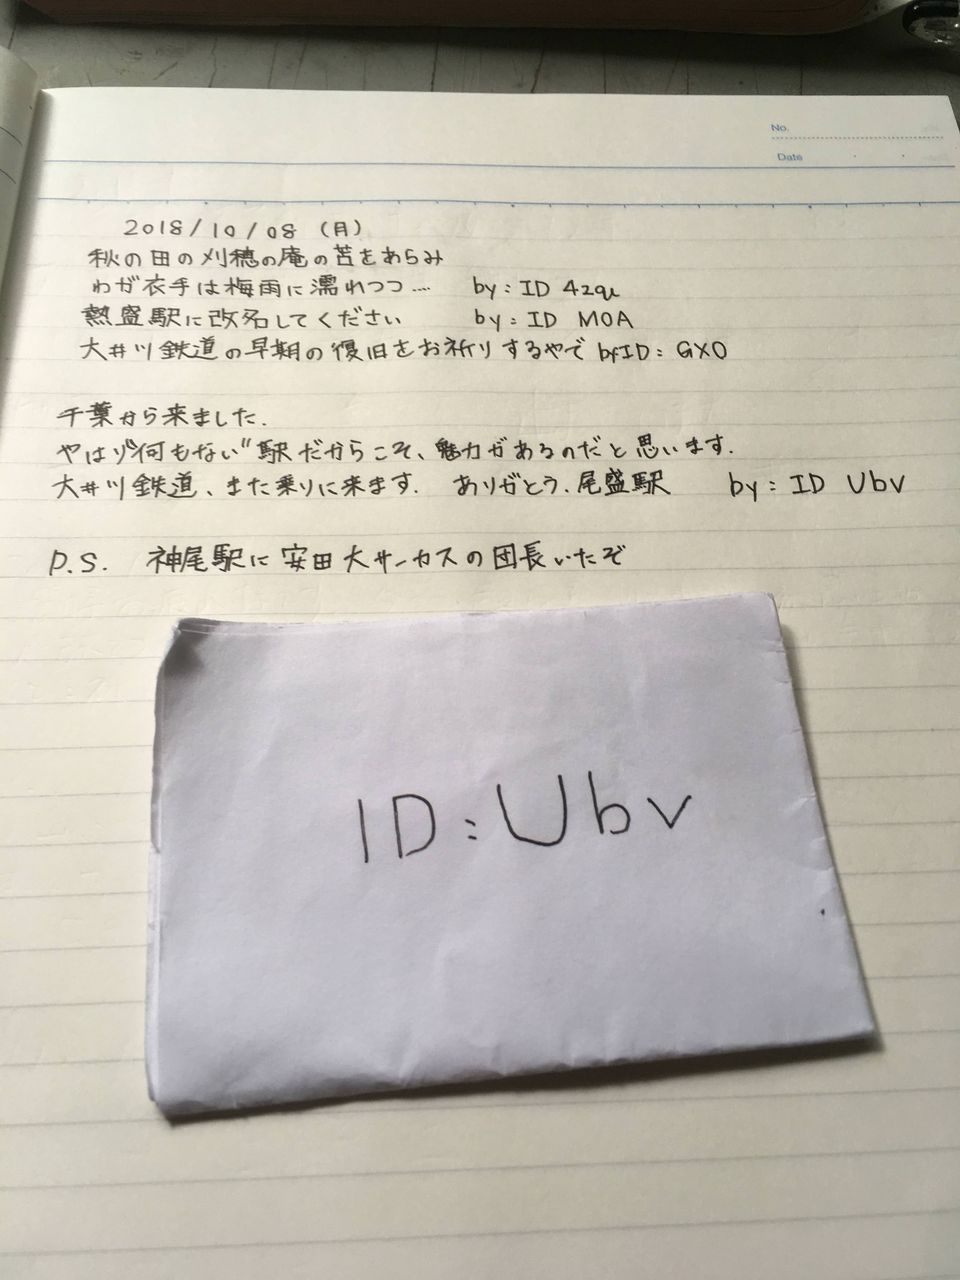 No.
Date
2018/10/08 (月)
秋の田の刈穂の庵の苫をあらみ
わが衣手は梅雨に濡れつつ… by: ID 4zqu
熱盛駅に改名してください by: ID MOA
大井川鉄道の早期の復旧をお祈りするやで byID: GXO
千葉から来ました.
やはり"何もない"駅だからこそ、魅力があるのだと思います.
大井川鉄道、また乗りに来ます. ありがとう、尾盛駅 by: ID Ubv
P.S. 神尾駅に安田大サーカスの団長いたぞ
ID:Ubv